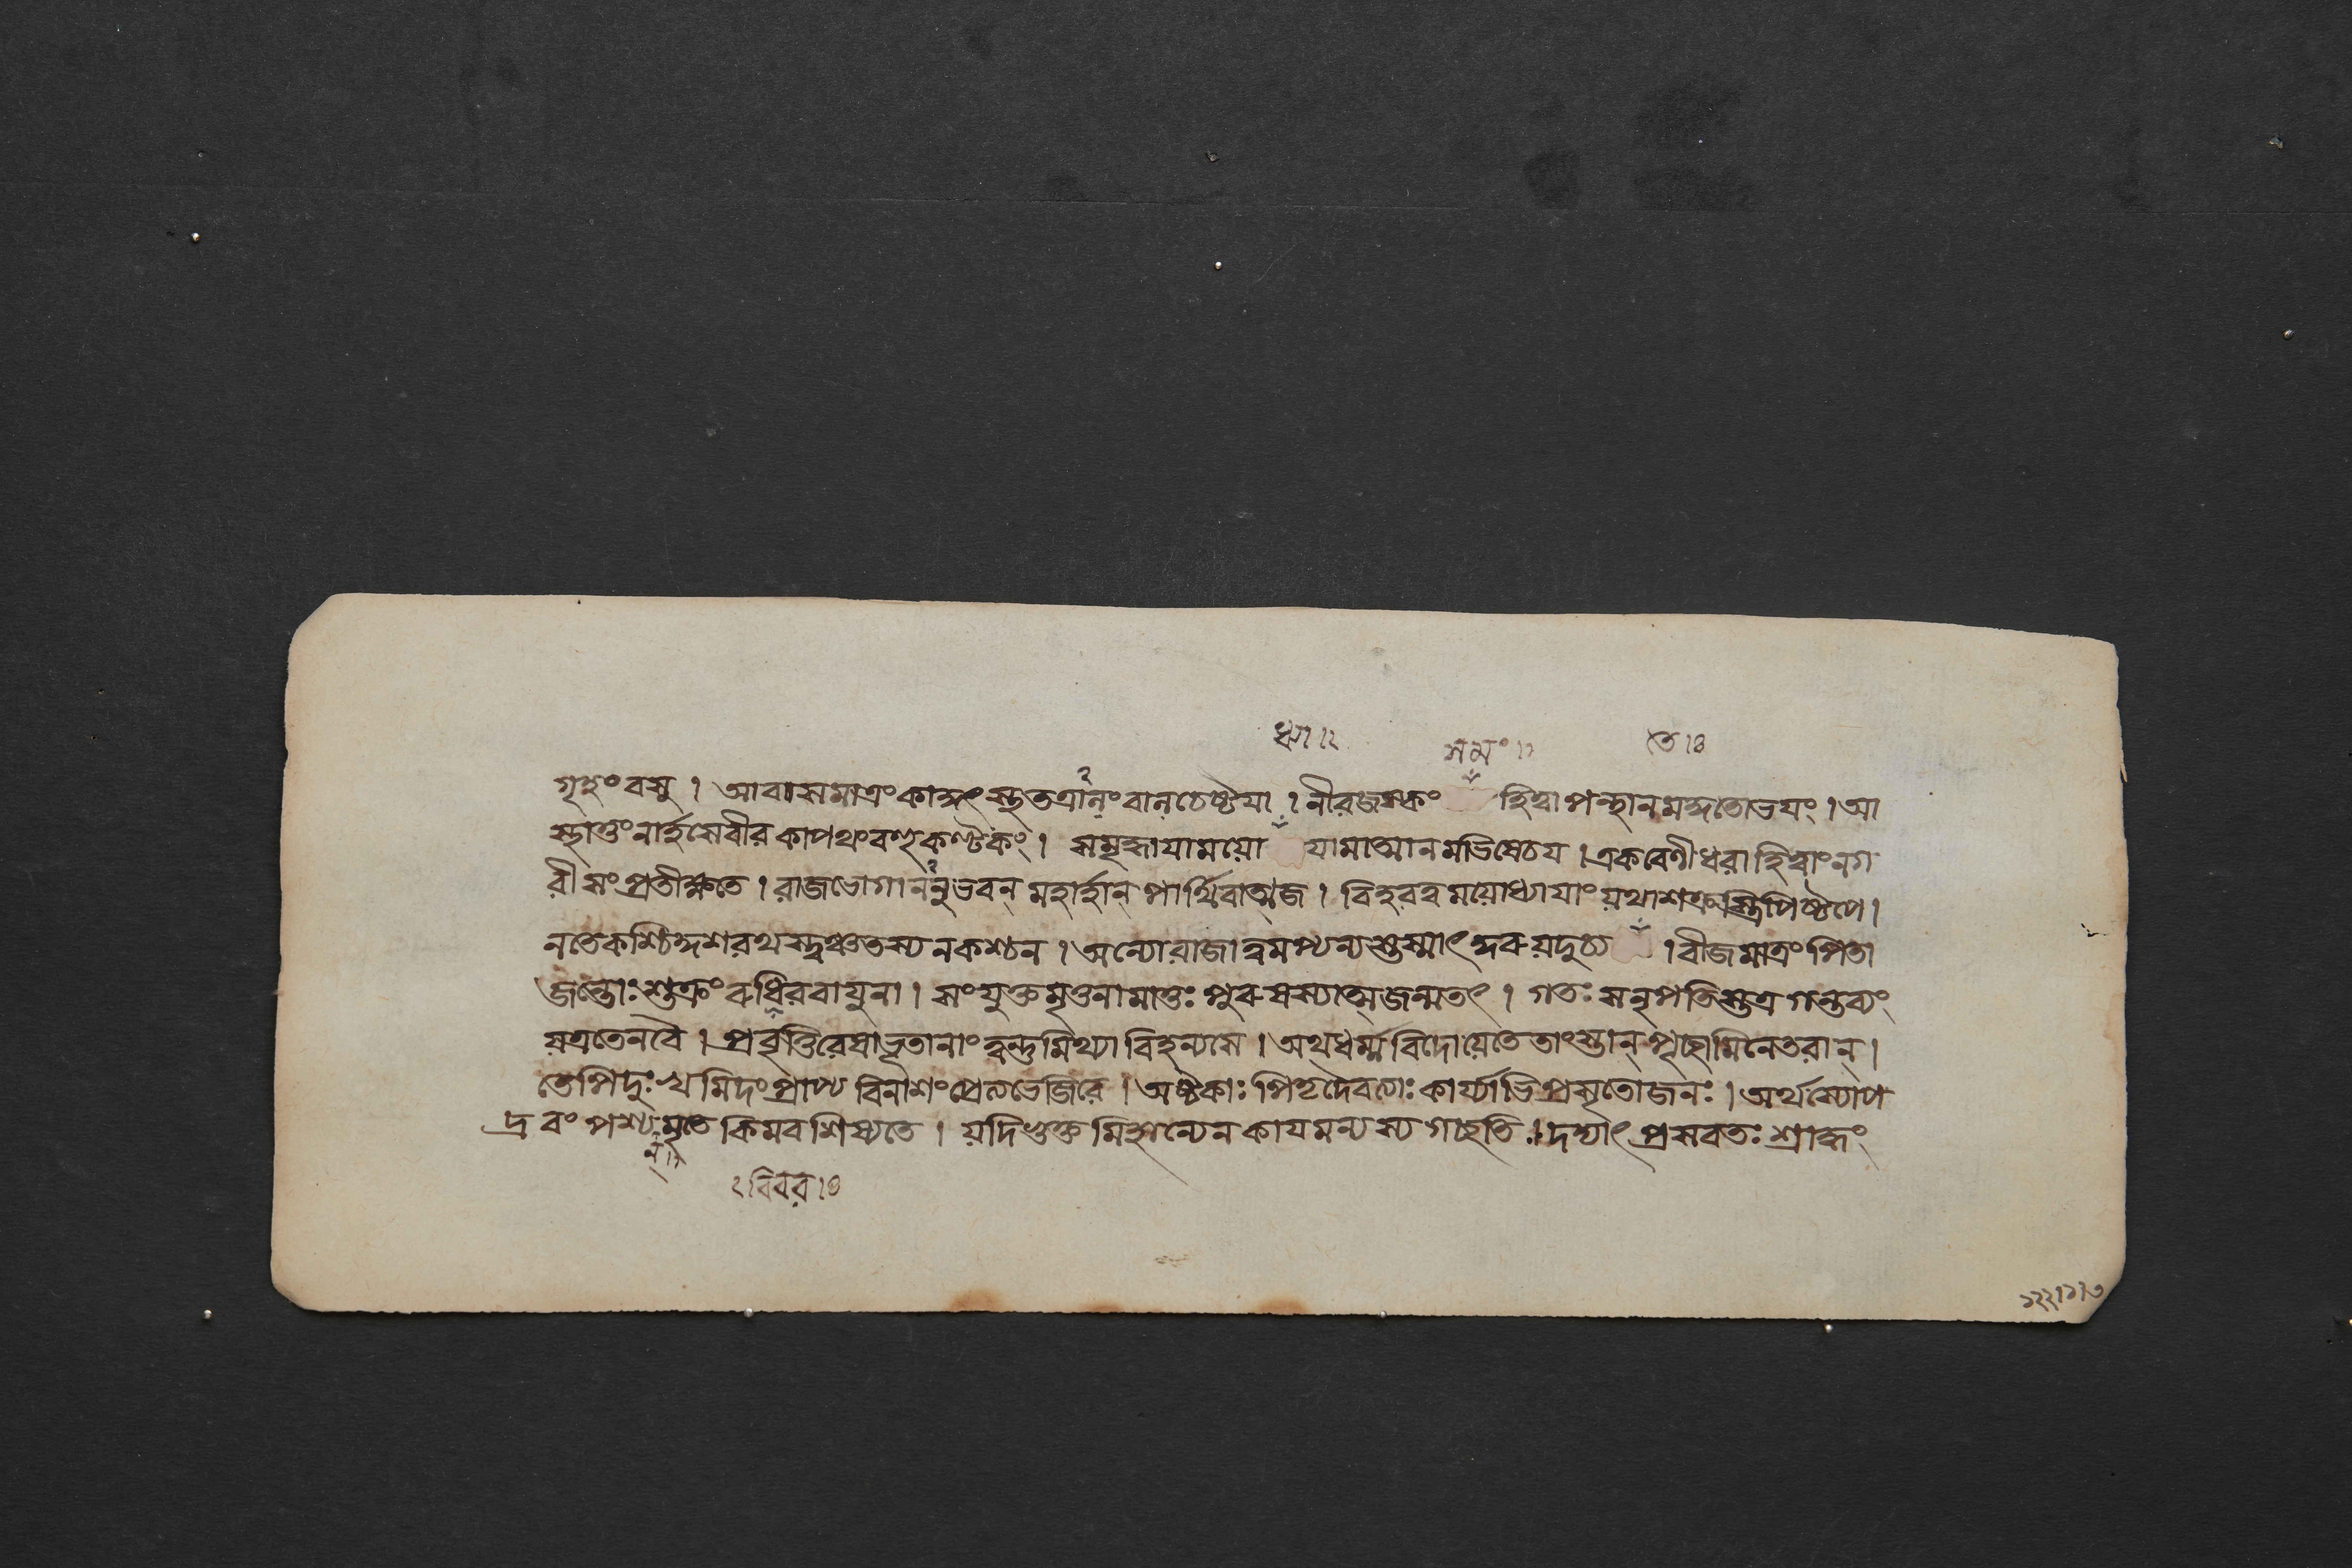 ধ্যা ।২
সমং ।১
তে ।৪
গৃহং বসু । আবাসমাত্রং কাকুৎস্তুতত্রানং বান চেষ্টয়া । নীরজস্কং হিত্বা পন্থানমকুতোভয়ং । আ
স্থাতুং নার্হসে বীর কাপথং বহুকণ্টকং । সমৃদ্ধায়ামযো য়ামাত্মানমভিষেচয় । একবেণীধরা হি ত্বাং নগ
রী সংপ্রতীক্ষতে । রাজভোগাননুভবন্ মহার্হান্ পার্থিবাত্মজ । বিহরত্বমযোধ্যায়াং যথা শক্রস্ত্রিপিষ্টপে ।
ন তে কশ্চিদ্দশরথস্ত্বঞ্চ তস্য ন কশ্চন । অন্যো রাজা ত্বমপ্যন্যস্তস্মাৎ কুরু যদুচ্য । বীজমাত্রং পিতা
জন্তোঃ শুক্রং রুধিরবায়ুনা । সংযুক্তমৃতুনা মাতুঃ পুরুষস্যাত্মজন্ম তৎ । গতঃ স নৃপতিস্তত্র গন্তব্যং
যত্র তেন বৈ । প্রবৃত্তিরেষা ভূতানাং ত্বন্তু মিথ্যা বিহন্যসে । অথ ধর্ম্মবিদো যে তে তাংস্তান্ পৃচ্ছামি নেতরান্ ।
তেপি দুঃখমিদং প্রাপ্য বিনাশং প্রেত্য ভেজিরে । অষ্টকাঃ পিতৃদেবত্যাঃ কার্য্যাভিপ্রসৃতো জনঃ । অর্থস্যোপ
দ্রবং পশ্য মৃতে কিমবশিষ্যতে । যদি ভুক্তমিহান্যেন কায়মন্যস্য গচ্ছতি । দদ্যাৎ প্রসবতঃ শ্রাদ্ধং
ন্ ।।
বিবর ।৩
১২২।১।৩